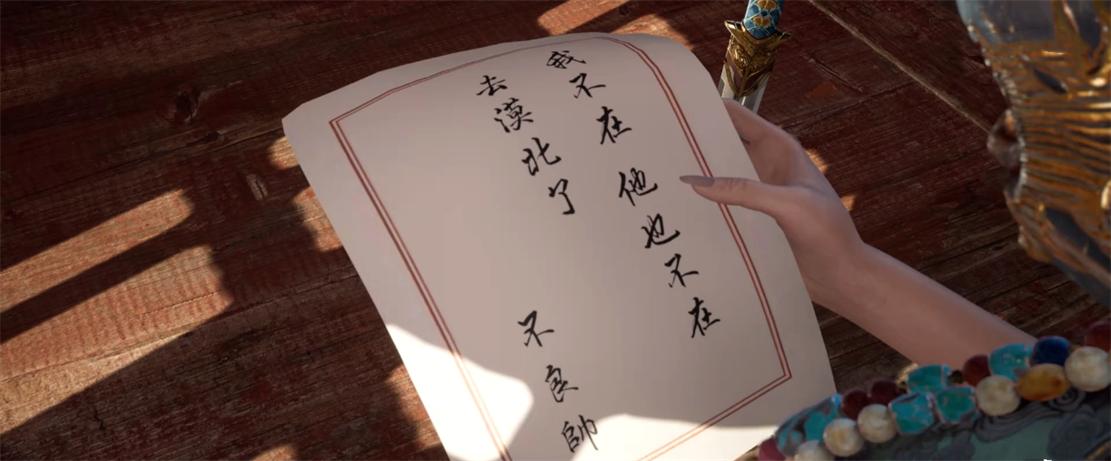 我不在他也不在
去漠北了
不良帥